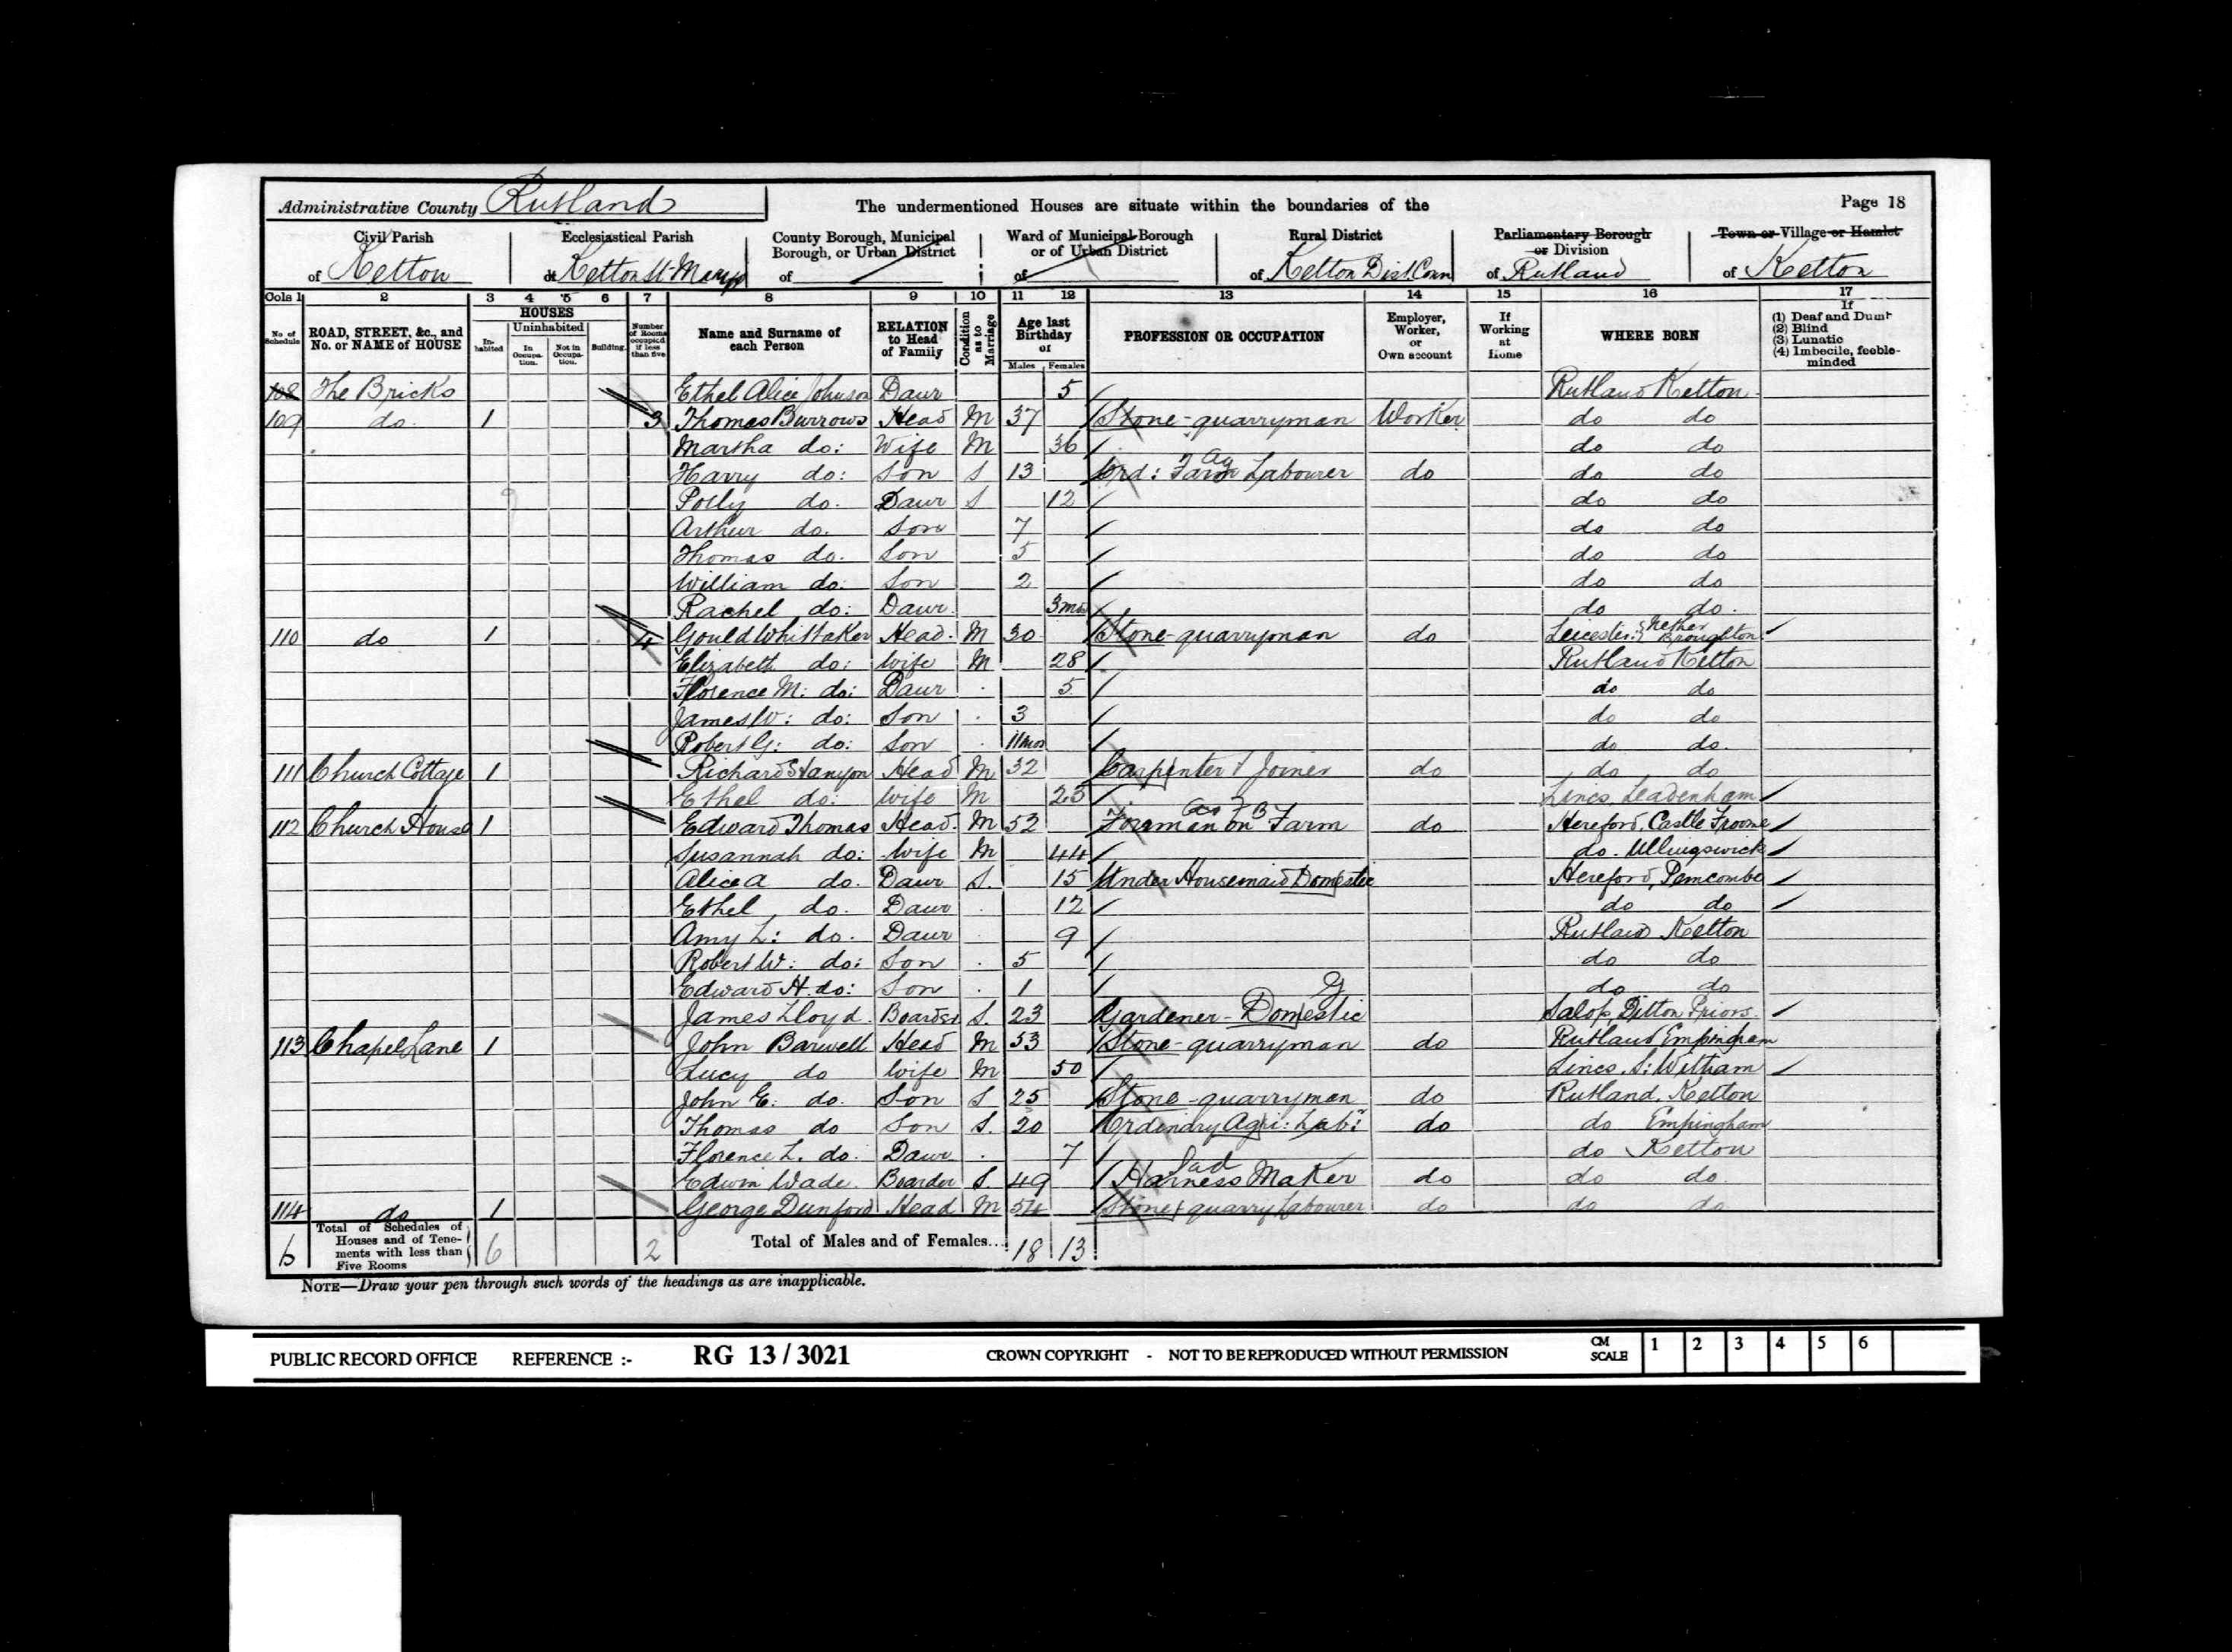 Administrative County Rutland
The undermentioned Houses are situate within the boundaries of the
Page 18
Civil Parish of Ketton
Ecclesiastical Parish of Ketton St. Mary
County Borough, Municipal Borough, or Urban District of
Ward of Municipal Borough or of Urban District of
Rural District of Ketton Dist. Coun
Parliamentary Borough or Division of Rutland
Town or Village or Hamlet of Ketton
Cols 1 2 3 4 5 6 7 8 9 10 11 12 13 14 15 16 17
No. of Schedule
ROAD, STREET, &c., and No. or NAME of HOUSE
HOUSES
Inhabited
Uninhabited
In Occupation.
Not in Occupation.
Building.
Number of Rooms occupied if less than five
Name and Surname of each Person
RELATION to Head of Family
Condition as to Marriage
Age last Birthday of
Males Females
PROFESSION OR OCCUPATION
Employer, Worker, or Own account
If Working at Home
WHERE BORN
If
(1) Deaf and Dumb
(2) Blind
(3) Lunatic
(4) Imbecile, feeble-minded
108 The Bricks Ethel Alice Johnson Daur 5 Rutland Ketton
109 do. 1 3 Thomas Burrows Head M 37 Stone-quarryman Worker do do
Martha do: Wife M 36 do do
Harry do: Son S 13 Ord: Farm Ag Labourer do do do
Polly do. Daur S 12 do do
Arthur do. Son 7 do do
Thomas do. Son 5 do do
William do. Son 2 do do
Rachel do: Daur. 3mos do do.
110 do 1 4 Gould Whittaker Head. M 30 Stone-quarryman do Leicester: Nether Broughton
Elizabeth do: Wife M 28 Rutland Ketton
Florence M: do: Daur 5 do do
James W: do: Son 3 do do
Robert G: do: Son 11mos do do.
111 Church Cottage 1 Richard Stanyon Head M 32 Carpenter & Joiner do do do
Ethel do: Wife M 25 Lincs. Leadenham
112 Church House 1 Edward Thomas Head. M 52 Foreman on Farm do Hereford, Castle Froome
Susannah do: Wife M 44 do. Ullingswick
Alice A do. Daur S. 15 Under Housemaid Domestic Hereford, Pencombe
Ethel do. Daur 12 do do
Amy L: do. Daur 9 Rutland Ketton
Robert W: do: Son 5 do do
Edward H. do: Son 1 do do
James Lloyd. Boarder S. 23 Gardener - Domestic G Salop, Ditton Priors.
113 Chapel Lane 1 John Barwell Head M 53 Stone-quarryman do Rutland Empingham
Lucy do Wife M 50 Lincs. S: Witham
John E. do. Son S 25 Stone-quarryman do Rutland, Ketton
Thomas do Son S. 20 Ordindry Agri: Labr: do do Empingham
Florence L. do. Daur. 7 do Ketton
Edwin Wade. Boarder S. 49 Harness Maker Sad do do do.
114 do 1 George Dunford Head M 54 Stone quarry Labourer do do do
6 Total of Schedules of Houses and of Tenements with less than Five Rooms 6 2 Total of Males and of Females... 18 13
NOTE—Draw your pen through such words of the headings as are inapplicable.
PUBLIC RECORD OFFICE REFERENCE :- RG 13/3021 CROWN COPYRIGHT - NOT TO BE REPRODUCED WITHOUT PERMISSION CM SCALE 1 2 3 4 5 6